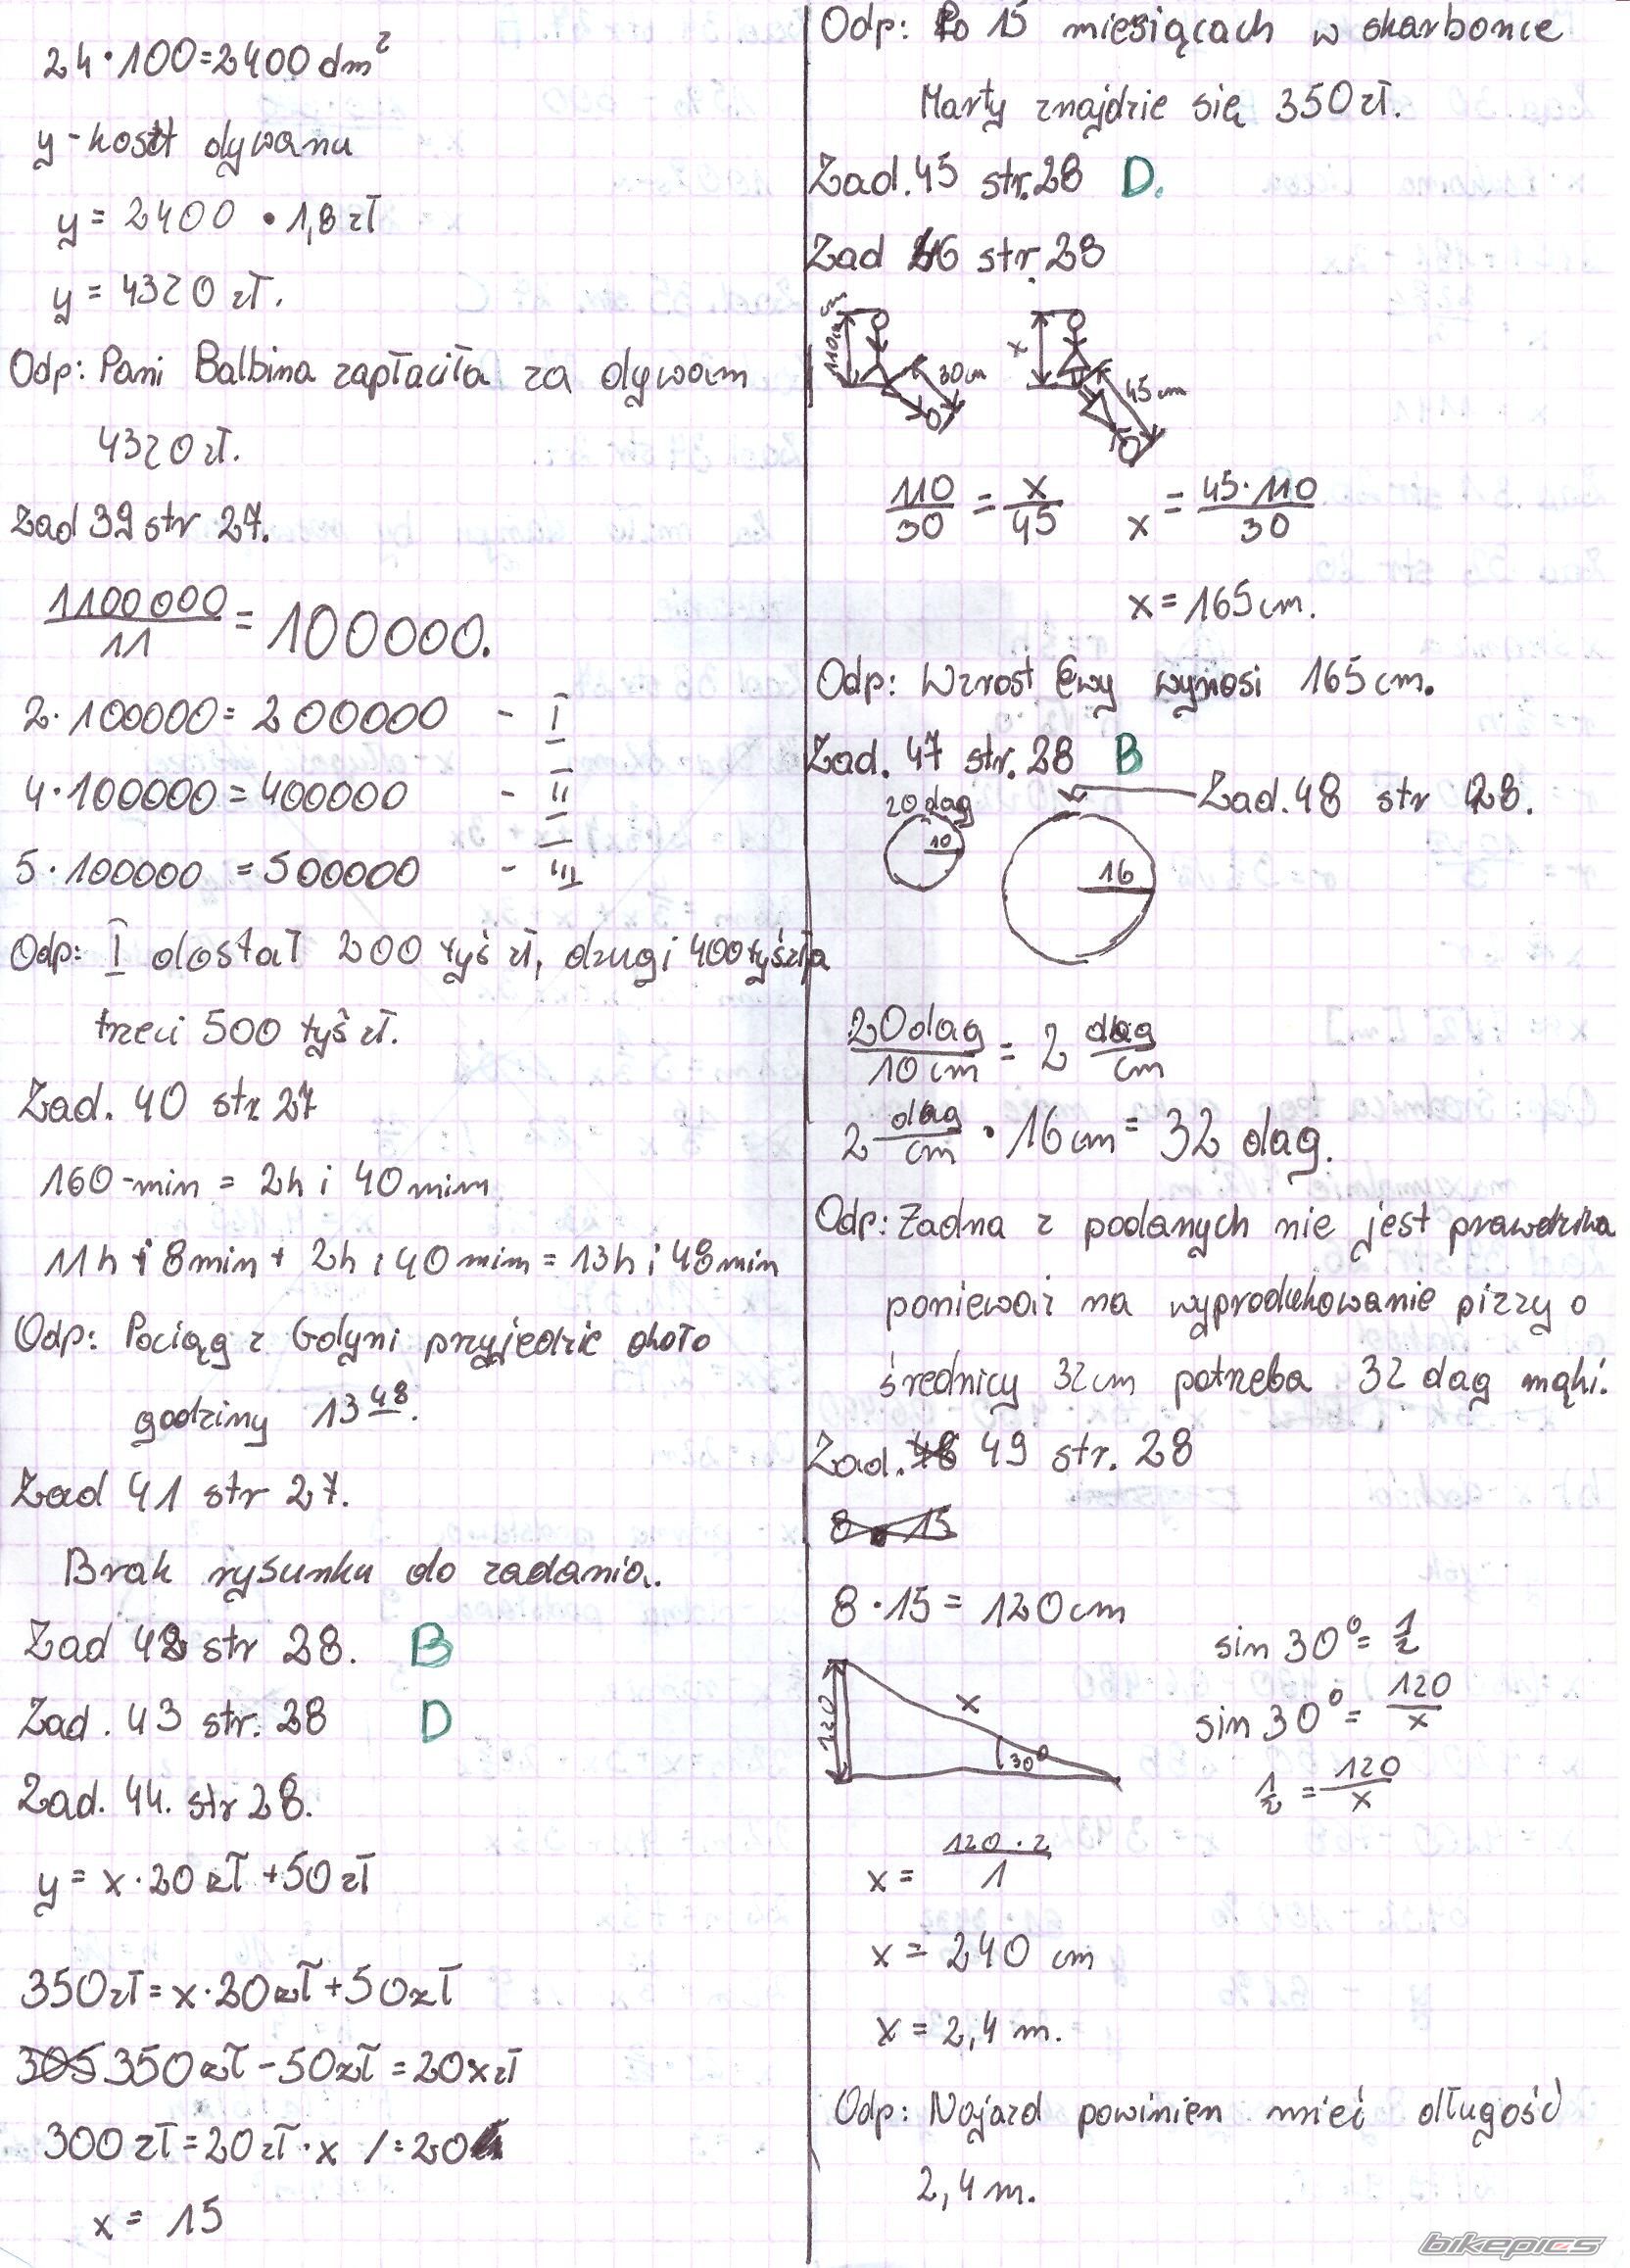 24 · 100 = 2400 dm²
y - koszt dywanu
y = 2400 · 1,8 zł
y = 4320 zł.
Odp: Pani Balbina zapłaciła za dywan
4320 zł.
Zad 39 str 27.
1100000/11 = 100000.
2 · 100000 = 200000 - I
4 · 100000 = 400000 - II
5 · 100000 = 500000 - III
Odp: I dostał 200 tyś zł, drugi 400 tyś zł, a
trzeci 500 tyś zł.
Zad. 40 str 27
160 min = 2h i 40 min
11h i 8min + 2h i 40 min = 13h i 48min
Odp: Pociąg z Gdyni przyjedzie około
godziny 13 48.
Zad 41 str 27.
Brak rysunku do zadania.
Zad 42 str 28. B
Zad. 43 str. 28 D
Zad. 44. str 28.
y = x · 20 zł + 50 zł
350 zł = x · 20 zł + 50 zł
305 350 zł - 50 zł = 20x zł
300 zł = 20 zł · x /:20
x = 15
Odp: Po 15 miesiącach w skarbonce
Marty znajdzie się 350 zł.
Zad. 45 str. 28 D.
Zad 46 str. 28
110 cm 30 cm x 45 cm
110/30 = x/45 x = 45·110/30
x = 165 cm.
Odp: Wzrost Ewy wynosi 165 cm.
Zad. 47 str. 28 B
20 dag Zad. 48 str 28.
10 16
20 dag/10 cm = 2 dag/cm
2 dag/cm · 16 cm = 32 dag.
Odp: Żadna z podanych nie jest prawdziwa
ponieważ na wyprodukowanie pizzy o
średnicy 32 cm potrzeba 32 dag mąki.
Zad. 48 49 str. 28
8 · 15
8 · 15 = 120 cm
sin 30° = 1/2
120 x 30°
sin 30° = 120/x
1/2 = 120/x
x = 120 · 2/1
x = 240 cm
x = 2,4 m.
Odp: Najazd powinien mieć długość
2,4 m.
bikepics